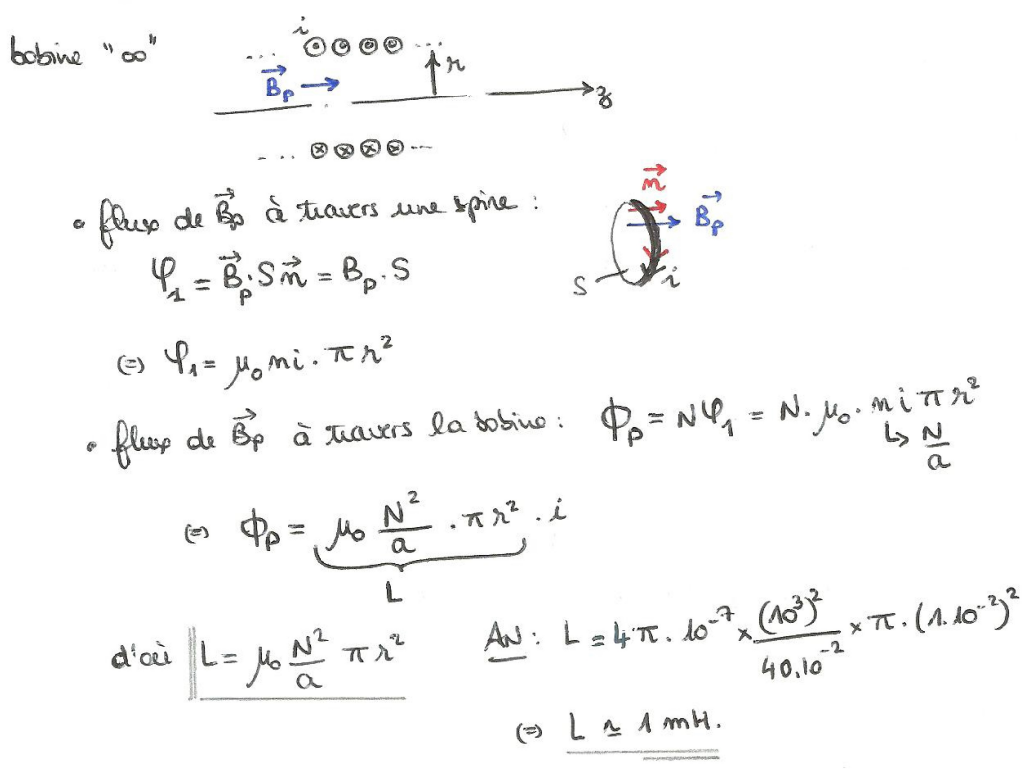 bobine "∞"
i
... ⊙⊙⊙⊙ ...
r
B⃗p
z
... ⊗⊗⊗⊗ ...
• flux de B⃗p à travers une spire :
n⃗
B⃗p
S
i
φ₁ = B⃗p . S n⃗ = Bp . S
(=) φ₁ = μ₀ n i . π r²
• flux de B⃗p à travers la bobine : Φp = Nφ₁ = N . μ₀ . n i π r²
↳ N/a
(=) Φp = μ₀ N²/a . π r² . i
L
d'où L = μ₀ N²/a π r²
AN : L = 4π . 10⁻⁷ × (10³)²/40.10⁻² × π . (1.10⁻²)²
(=) L ≃ 1 mH.